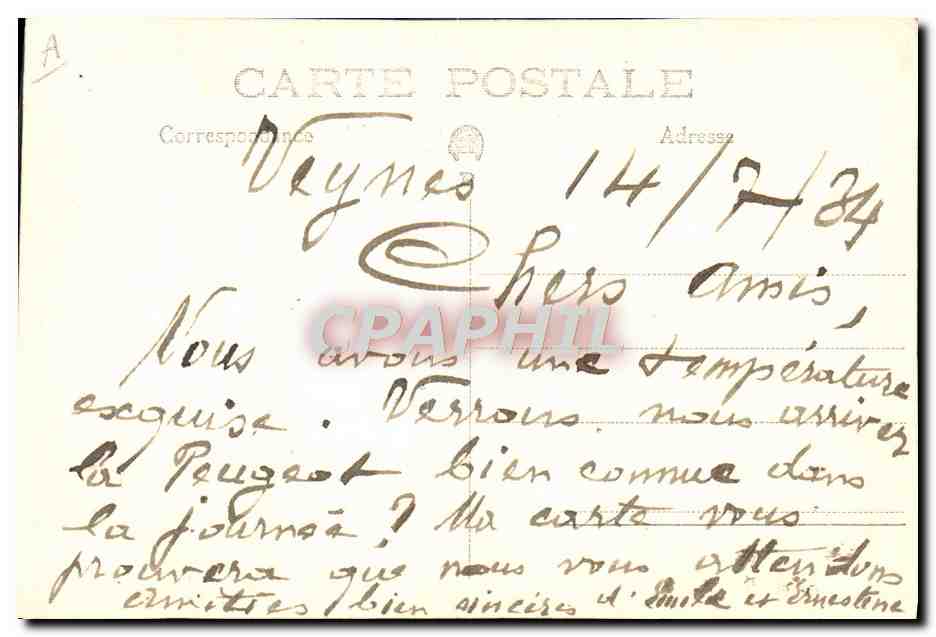 A
CARTE POSTALE
Correspondance Adresse
Veynes 14/7/34
Chers amis,
CPAPHIL
Nous avons une température
exquise. Verrons nous arriver
la Peugeot bien connue dans
la journée ? Ma carte vous
prouvera que nous vous attendons
amitiés bien sincères d'Emile et Ernestine